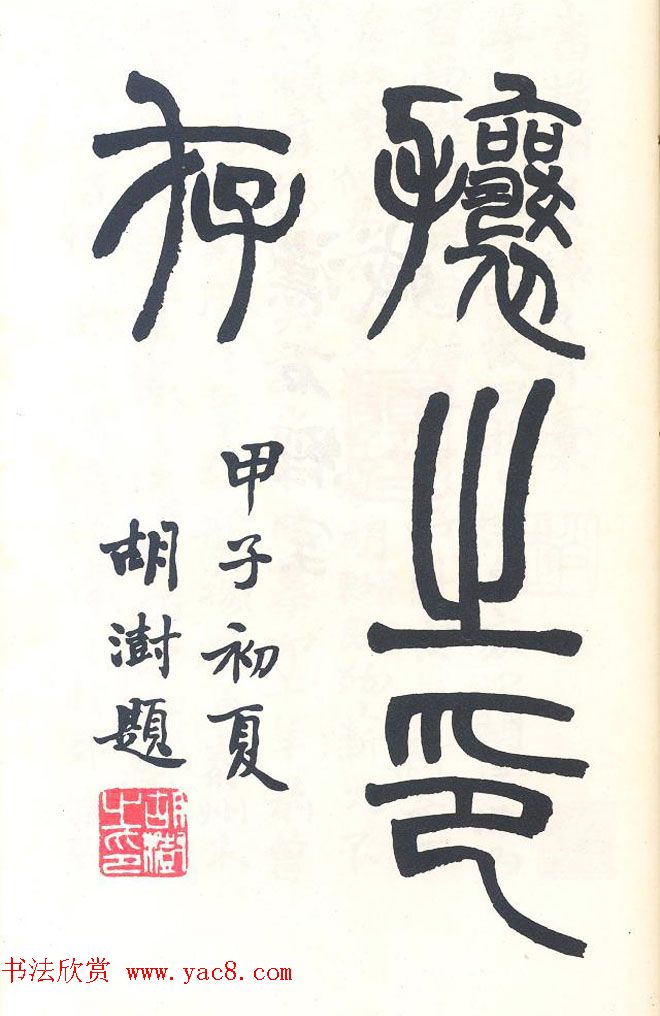 攘之印
存
甲子初夏
胡澍題
胡澍
之印
书法欣赏 www.yac8.com